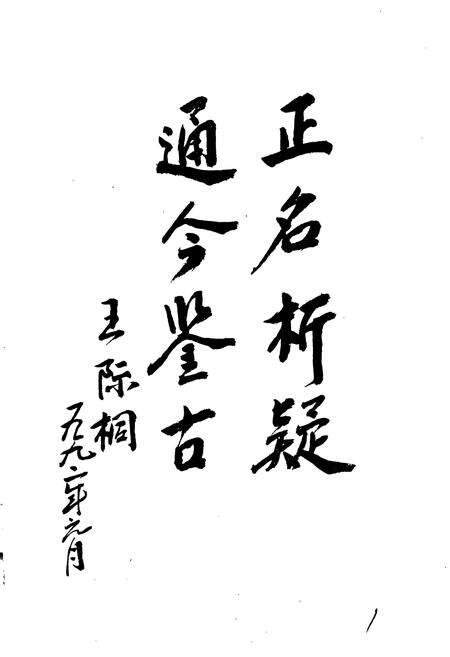 正名析疑
通今鉴古
王际桐
一九九二年元月